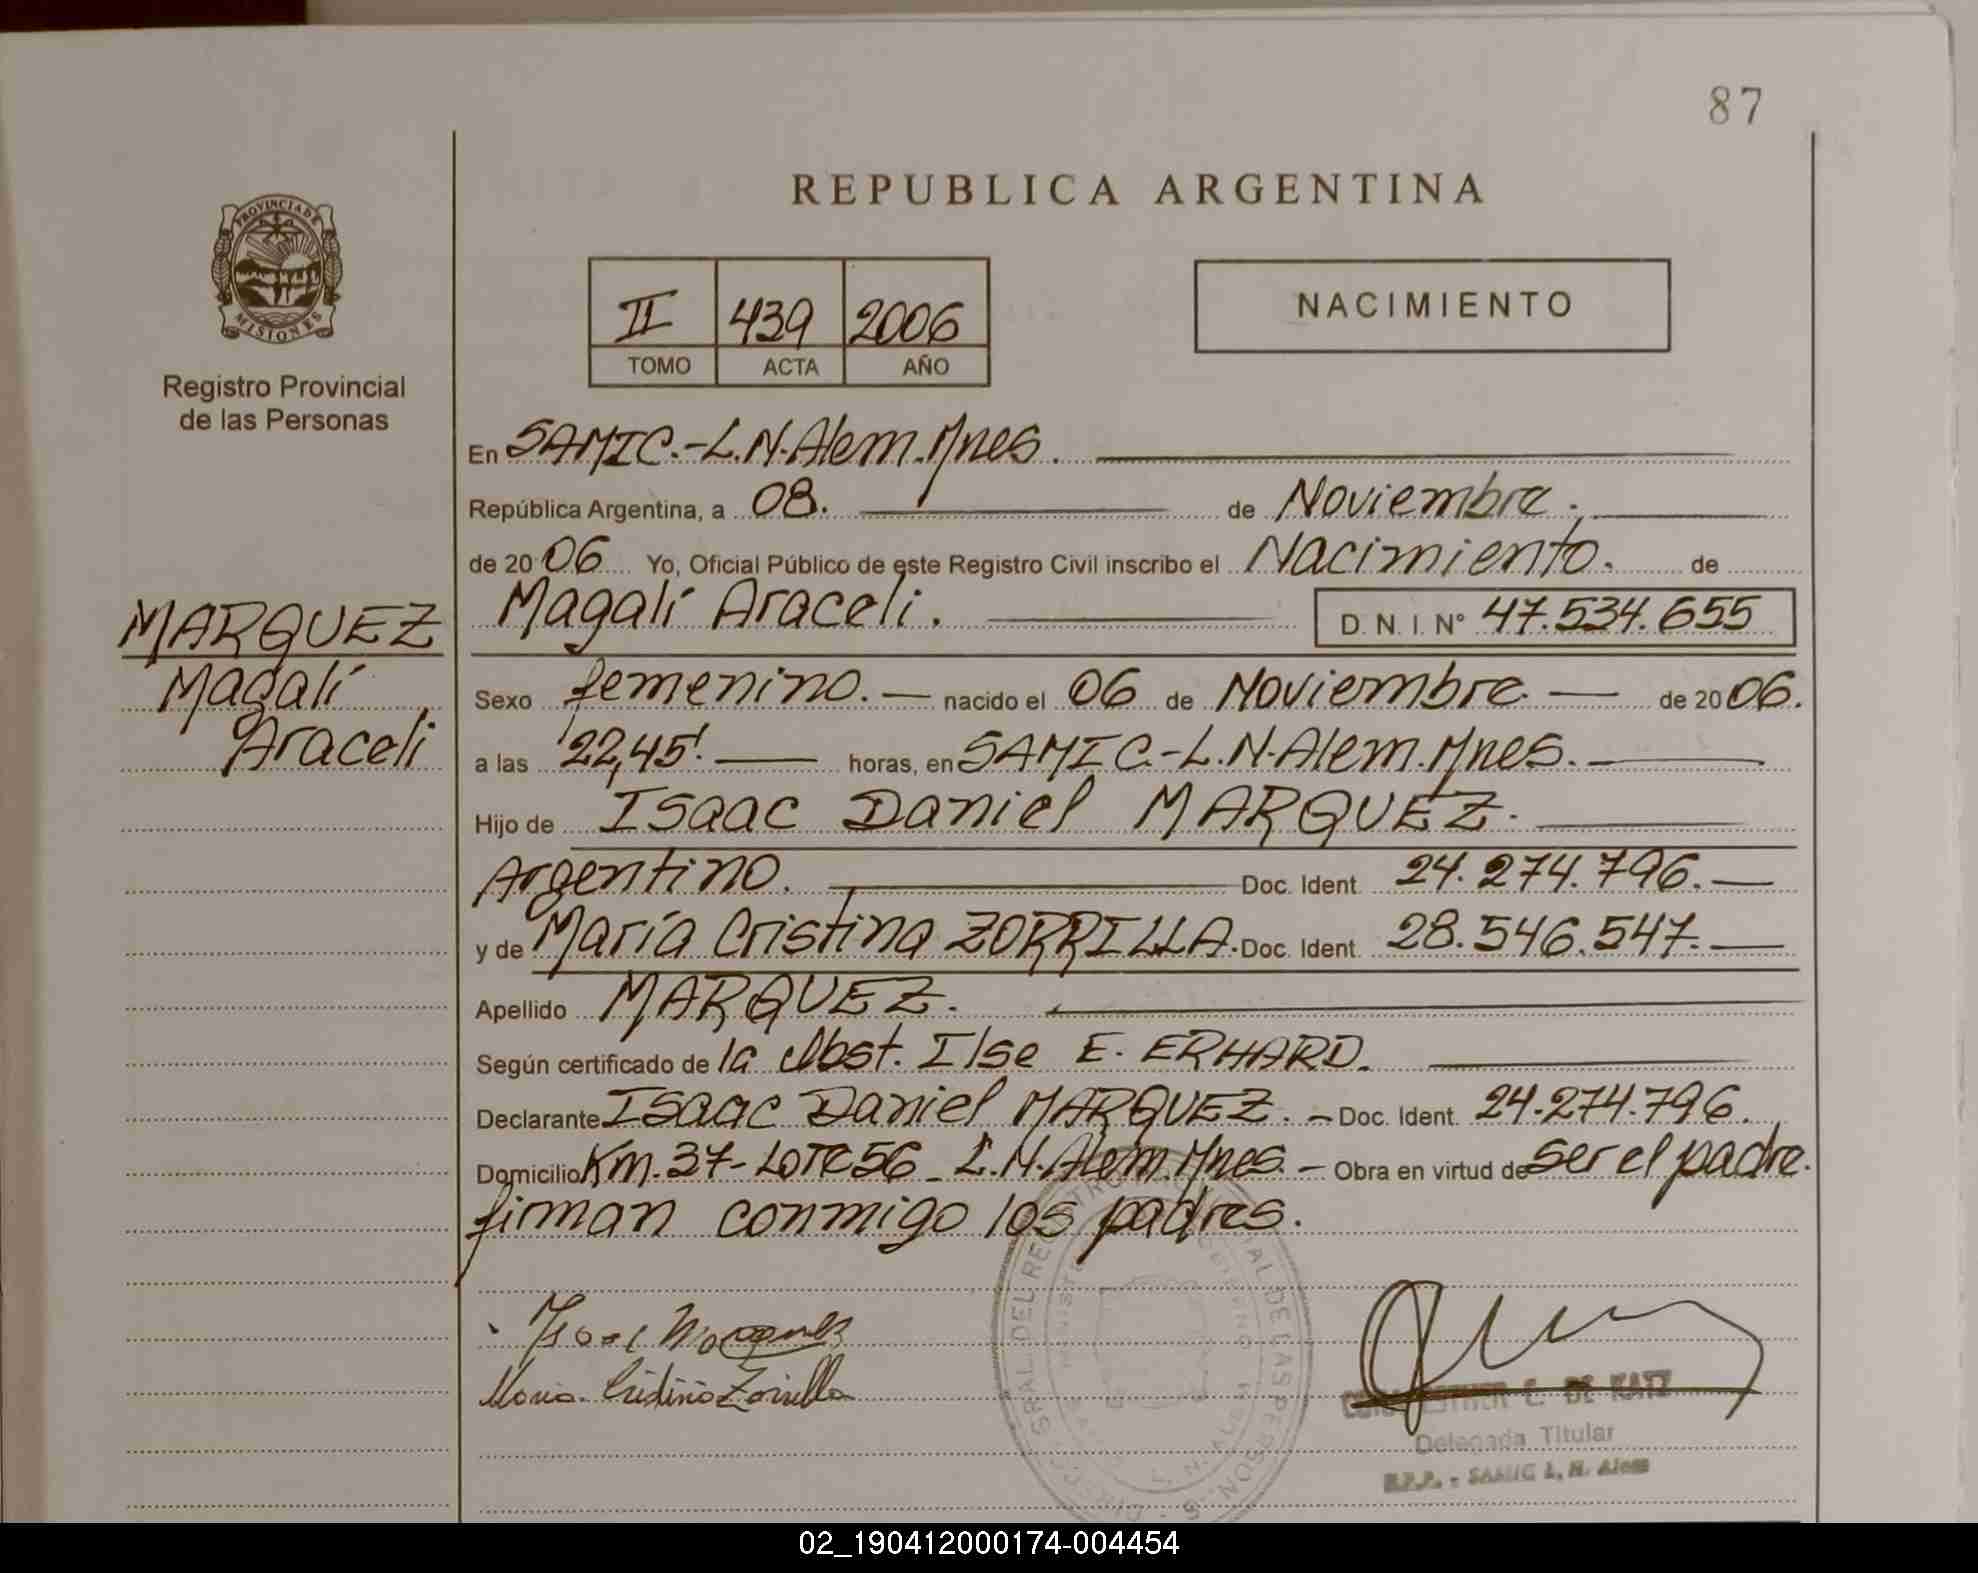 87
REPUBLICA ARGENTINA
PROVINCIA DE
MISIONES
Registro Provincial
de las Personas
II 439 2006
TOMO ACTA AÑO
NACIMIENTO
En SAMIC.-L.N.Alem.Mnes.
República Argentina, a 08. de Noviembre.
de 20 06 Yo, Oficial Público de este Registro Civil inscribo el Nacimiento. de
Magalí Araceli. D.N.I. N° 47.534.655
MARQUEZ
Magalí
Araceli
Sexo femenino.— nacido el 06 de Noviembre.— de 20 06.
a las 22,45'.— horas, en SAMIC.-L.N.Alem.Mnes.
Hijo de Isaac Daniel MARQUEZ.
Argentino. Doc. Ident. 24.274.796.—
y de María Cristina ZORRILLA. Doc. Ident. 28.546.547.—
Apellido MARQUEZ.
Según certificado de la Obst. Ilse E. ERHARD.
Declarante Isaac Daniel MARQUEZ.— Doc. Ident. 24.274.796.
Domicilio Km.37-Lote 56_L.N.Alem.Mnes.— Obra en virtud de ser el padre.
firman conmigo los padres.
Maria Cristina Zorrilla
E. DE KATZ
Delegada Titular
R.P.P. - SAMIC L. N. Alem
02_190412000174-004454